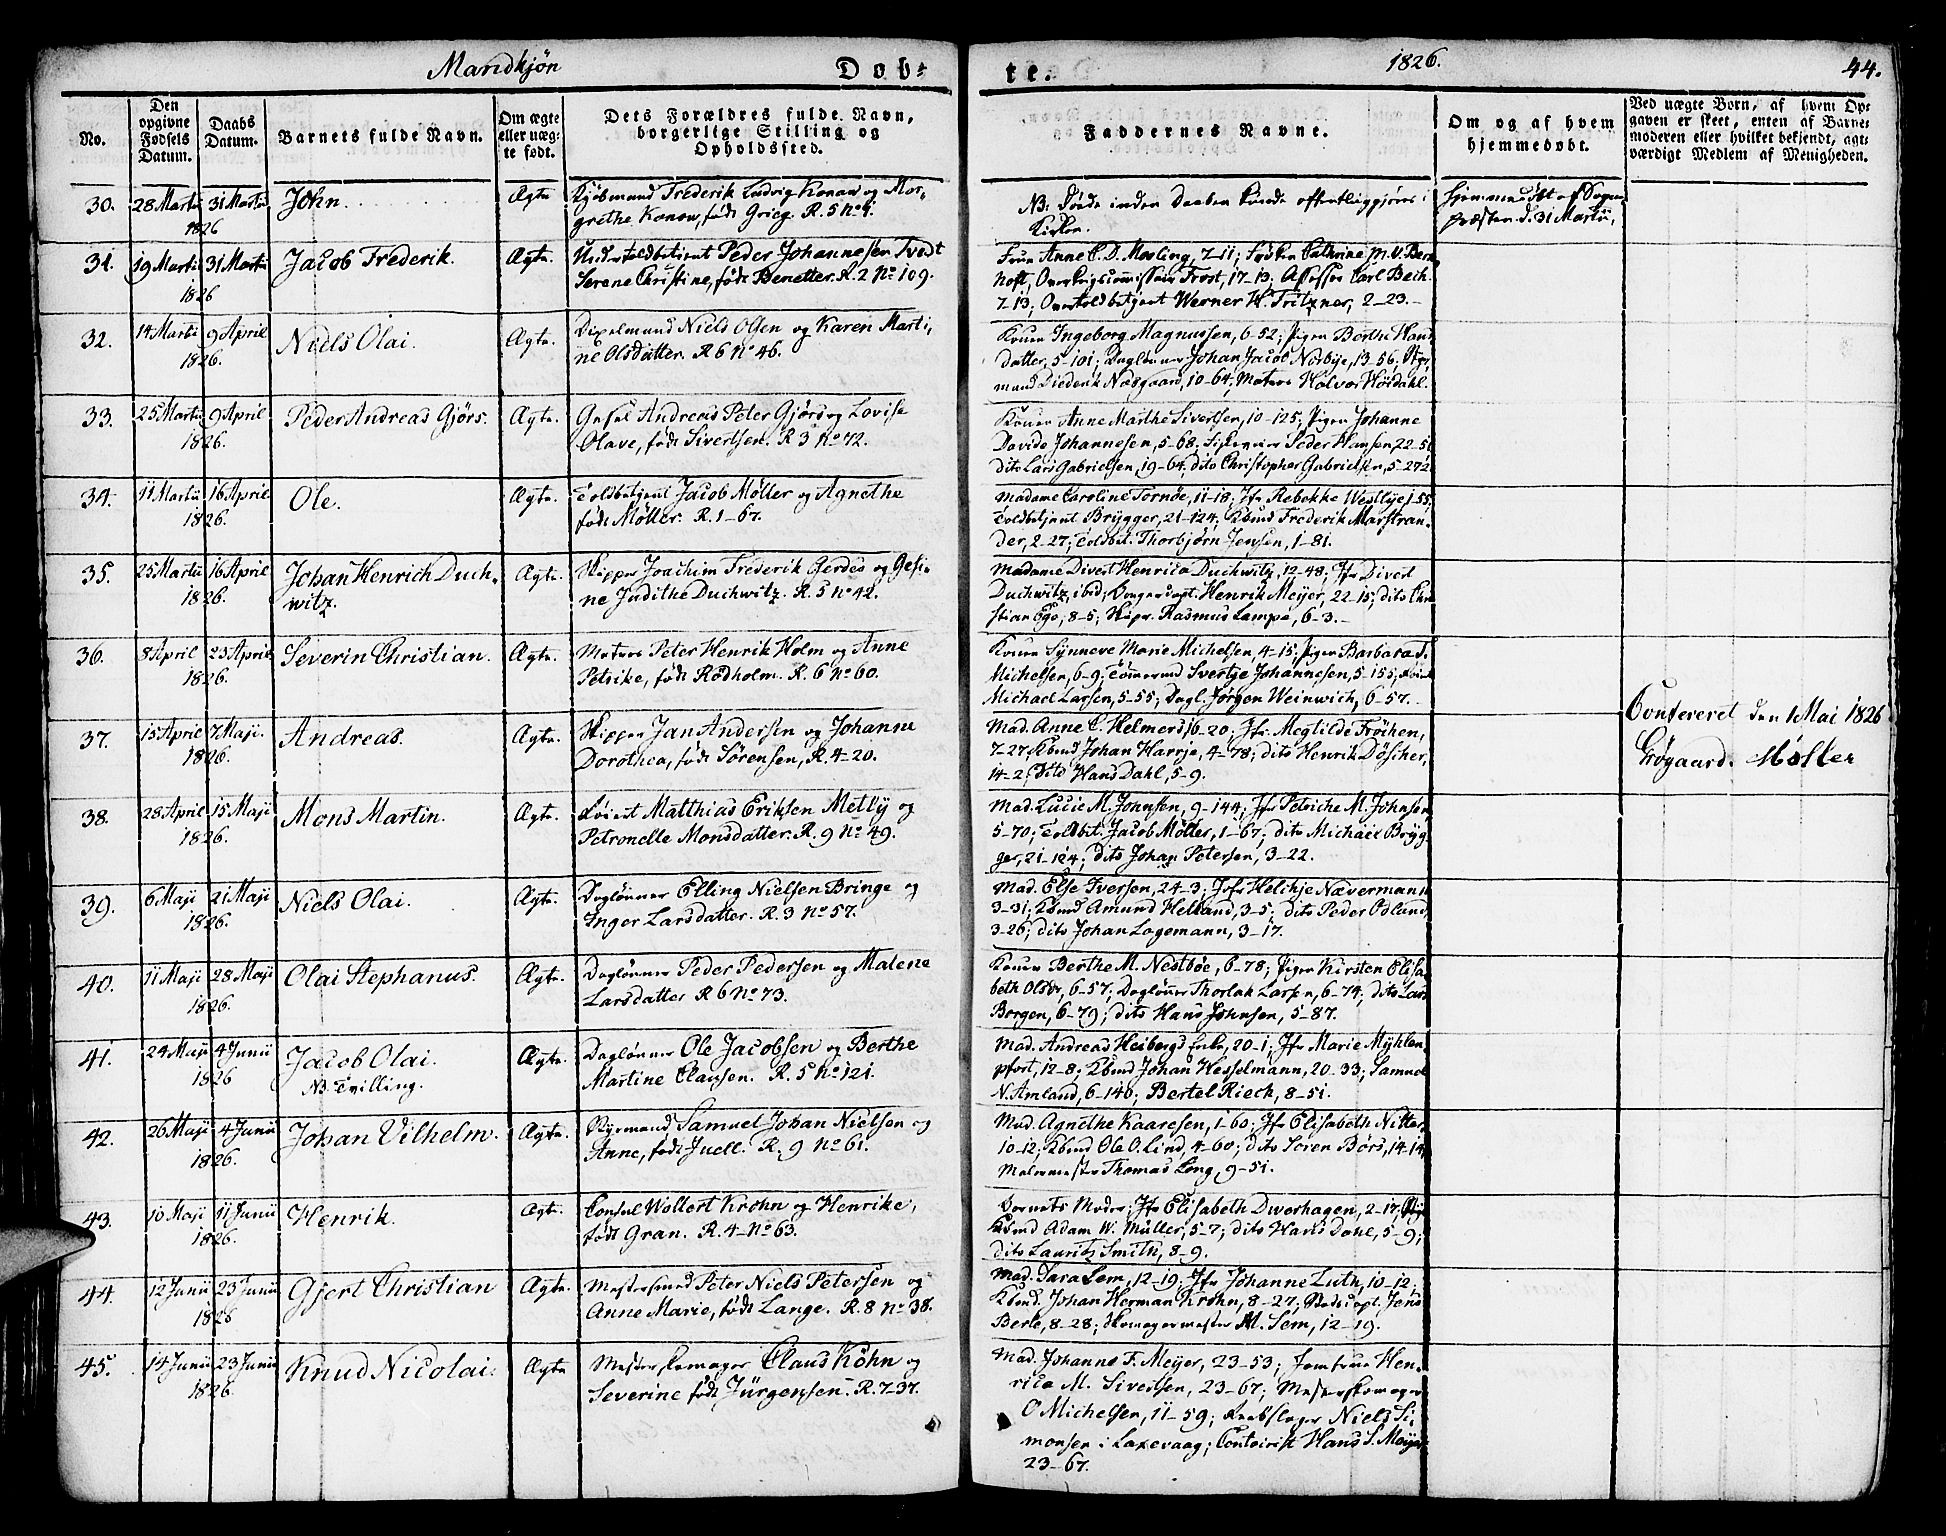 Mandkjøn
Døb-
te.
1826.
44.
No.
Den opgivne Fødsels Datum.
Daabs Datum.
Barnets fulde Navn.
Om ægte eller uægte født.
Dets Forældres fulde Navn, borgerlige Stilling og Opholdssted.
Faddernes Navne.
Om og af hvem hjemmedøbt.
Ved uægte Børn, af hvem Opgaven er skeet, enten af Barnemoderen eller hvilket bekjendt, agtværdigt Medlem af Menigheden.
30. 28 Martii 31 Martii John. Ægte Kjøbmand Frederik Ludvig Konow og Mar-
1826 grethe Konow, født Grieg. R. 5 No 4.
NB: Døde inden Daaben kunde offentliggjøres i
Kirken.
Hjemmedøbt af Sogne-
præsten d. 31 Martii.
31. 19 Martii 31 Martii Jacob Frederik. Ægte. Undertoldbetjent Peder Johannesen Tvedt
1826 Serene Christine, født Benetter. R. 2 No 109.
Frue Anne C. D. Mowling, 7-11; Frøken Cathrine M. V. Bern-
hoft, Overkrigscommissair Frost, 17-13; Assessor Carl Bech.
Z 13; Overtoldbetjent Werner H. Fritzner, 2-23.
32. 14 Martii 9 April Niels Olai. Ægte. Dixelmand Niels Olsen og Karen Marti-
1826. ne Olsdatter. R 6 No 46.
Konen Ingeborg Magnussen, 6-52; Pigen Berthe Hans
datter, 5-101; Dagløner Johan Jacob Nesbye, 13-56; Styr-
mand Diederik Næsgaard, 10-64; Matros Halvor Hørdahl.
33. 25 Martii 9 April Peder Andreas Gjörs. Ægte. Gesel Andreas Peter Gjörs og Lovise
1826. Olave, født Sivertsen. R 3 No 72.
Konen Anne Marthe Sivertsen, 10-125; Pigen Johanne
Davide Johannesen, 5-68. Peder Hansen, 22-51
dito Lars Gabrielsen, 19-64, dito Christopher Gabrielsen, 5-272
34. 11 Martii 16 April Ole. Ægte. Toldbetjent Jacob Møller og Agnethe
1826. født Møller. R. 1-67.
Madame Caroline Tornöe, 11-18; Jfr Rebekke Westlye 1-55;
Toldbetjent Brügger, 21-124; Kbmd Frederik Marstran-
der, 2-27; Toldbet. Thorbjørn Jensen, 1-81.
35. 25 Martii 16 April Johan Henrich Duch- Ægte. Skipper Joachim Frederik Gerdes og Gesi-
1826. witz. ne Judithe Duchwitz. R. 5 No 42.
Madame Divert Henrica Duchwitz, 12-48; Jfr Divert
Duchwitz, ibid; Borgercapt. Henrik Meijer, 22-15; dito Chri-
stian Ege, 8-5; Skipr. Rasmus Lampe, 6-3.
36. 8 April 23 April Severin Christian. Ægte. Matros Peter Henrik Holm og Anne
1826. Petrike, født Rødholm. R. 6 No 60.
Konen Synneve Marie Michelsen, 4-15. Pigen Barbara T.
Michelsen, 6-9; Tømermd Svertje Johannesen, 5-155;
Michael Larsen, 5-55; Dagl. Jörgen Weinwich, 6-57.
37. 15 April 7 Maji. Andreas. Ægte. Skipper Jan Andersen og Johanne
1826. Dorothea, født Sörensen, R. 4-20.
Mad. Anne C. Helmers 16-20; Jfr. Megtilde Fröchen,
7-27; Kbmd Johan Harrje, 4-78; dito Henrik Döscher,
14-2; dito Hans Dahl, 5-9.
Confereret den 1 Mai 1826
Grøgaard. Møller
38. 28 April 15 Maji Mons Martin. Ægte. Løient Matthias Eriksen Metly og
1826. Petronelle Monsdatter. R. 9 No 49.
Mad. Lucie M. Johnsen, 9-144; Jfr Petriche M. Johnsen
5-70; Toldbet. Jacob Møller, 1-67; dito Michael Brüg-
ger, 21-124; dito Johan Petersen, 3-22.
39. 6 Maji 21 Maji Niels Olai. Ægte. Dagløner Elling Nielsen Bringe og
1826. Inger Larsdatter. R. 3 No 57.
Mad. Else Iversen, 24-3; Jfr Helchje Nævermann
3-31; Kbmd Amund Helland, 3-5; dito Peder Odland,
3-26; dito Johan Lagemann, 3-17.
40. 11 Maji 28 Maji Olai Stephanus. Ægte. Dagløner Peder Pedersen og Malene
1826. Larsdatter R 6 No 73.
Konen Berthe M. Nestböe, 6-78; Pigen Kirsten Elisa-
beth Olsdr, 6-57. Dagløner Thorlak Larsen, 6-74; dito Lars
Borgen, 6-79; dito Hans Johnsen, 5-87.
41. 24 Maji 4 Junii Jacob Olai. Ægte. Dagløner Ole Jacobsen og Berthe
1826 NB. Tvilling. Martine Clausen. R. 5 No 121.
Mad. Andreas Heibergs Enke, 20-1; Jfr Marie Mühlen-
pfort, 12-8; Kbmd Johan Hesselmann, 20-33; Samuel
N. Amland, 6-140; Bertel Rieck, 8-51.
42. 26 Maji 4 Junii Johan Vilhelm. Ægte. Styrmand Samuel Johan Nielsen og
1826. Anne, født Juell. R. 9 No 61.
Mad. Agnethe Kaaresen, 1-60; Jfr Elisabeth Nitter,
10-12; Kbmd Ole O. Lind, 4-60; dito Sören Börs, 14-14,
Malermester Thomas Leng, 9-51.
43. 10 Maji 11 Junii Henrik. Ægte. Consul Wollert Krohn og Henrike,
1826. født Gran. R. 4-No 63.
Barnets Moder; Jfr Elisabeth Dwerhagen, 2-17;
Kbmd Adam W. Müller, 5-7; dito Hans Dahl, 5-9;
dito Lauritz Smith, 8-9.
44. 12 Junii 23 Junii Gjert Christian Ægte. Mestersmed Peter Niels Petersen og
1826 Anne Marie, født Lange. R. 8 No 38.
Mad. Sara Lem, 12-19; Jfr Johanne Luth, 10-12;
Kbmd. Johan Herman Krohn, 8-27; Jens
Berle, 8-28; Skomagermester M. Sem, 12-19.
45. 14 Junii 23 Junii Knud Nicolai. Ægte Mester Skomager Claus Köhn og
1826. Severine født Jürgensen. R. 7-37.
Mad. Johanne F. Meijer, 23-53; Jomfrue Hen-
rica M. Sivertsen, 23-67; Mesterskomager
O Michelsen, 11-59; Reebslager Niels Si-
monsen i Laxevaag; Contoirist Hans S. Meijer
23-67.